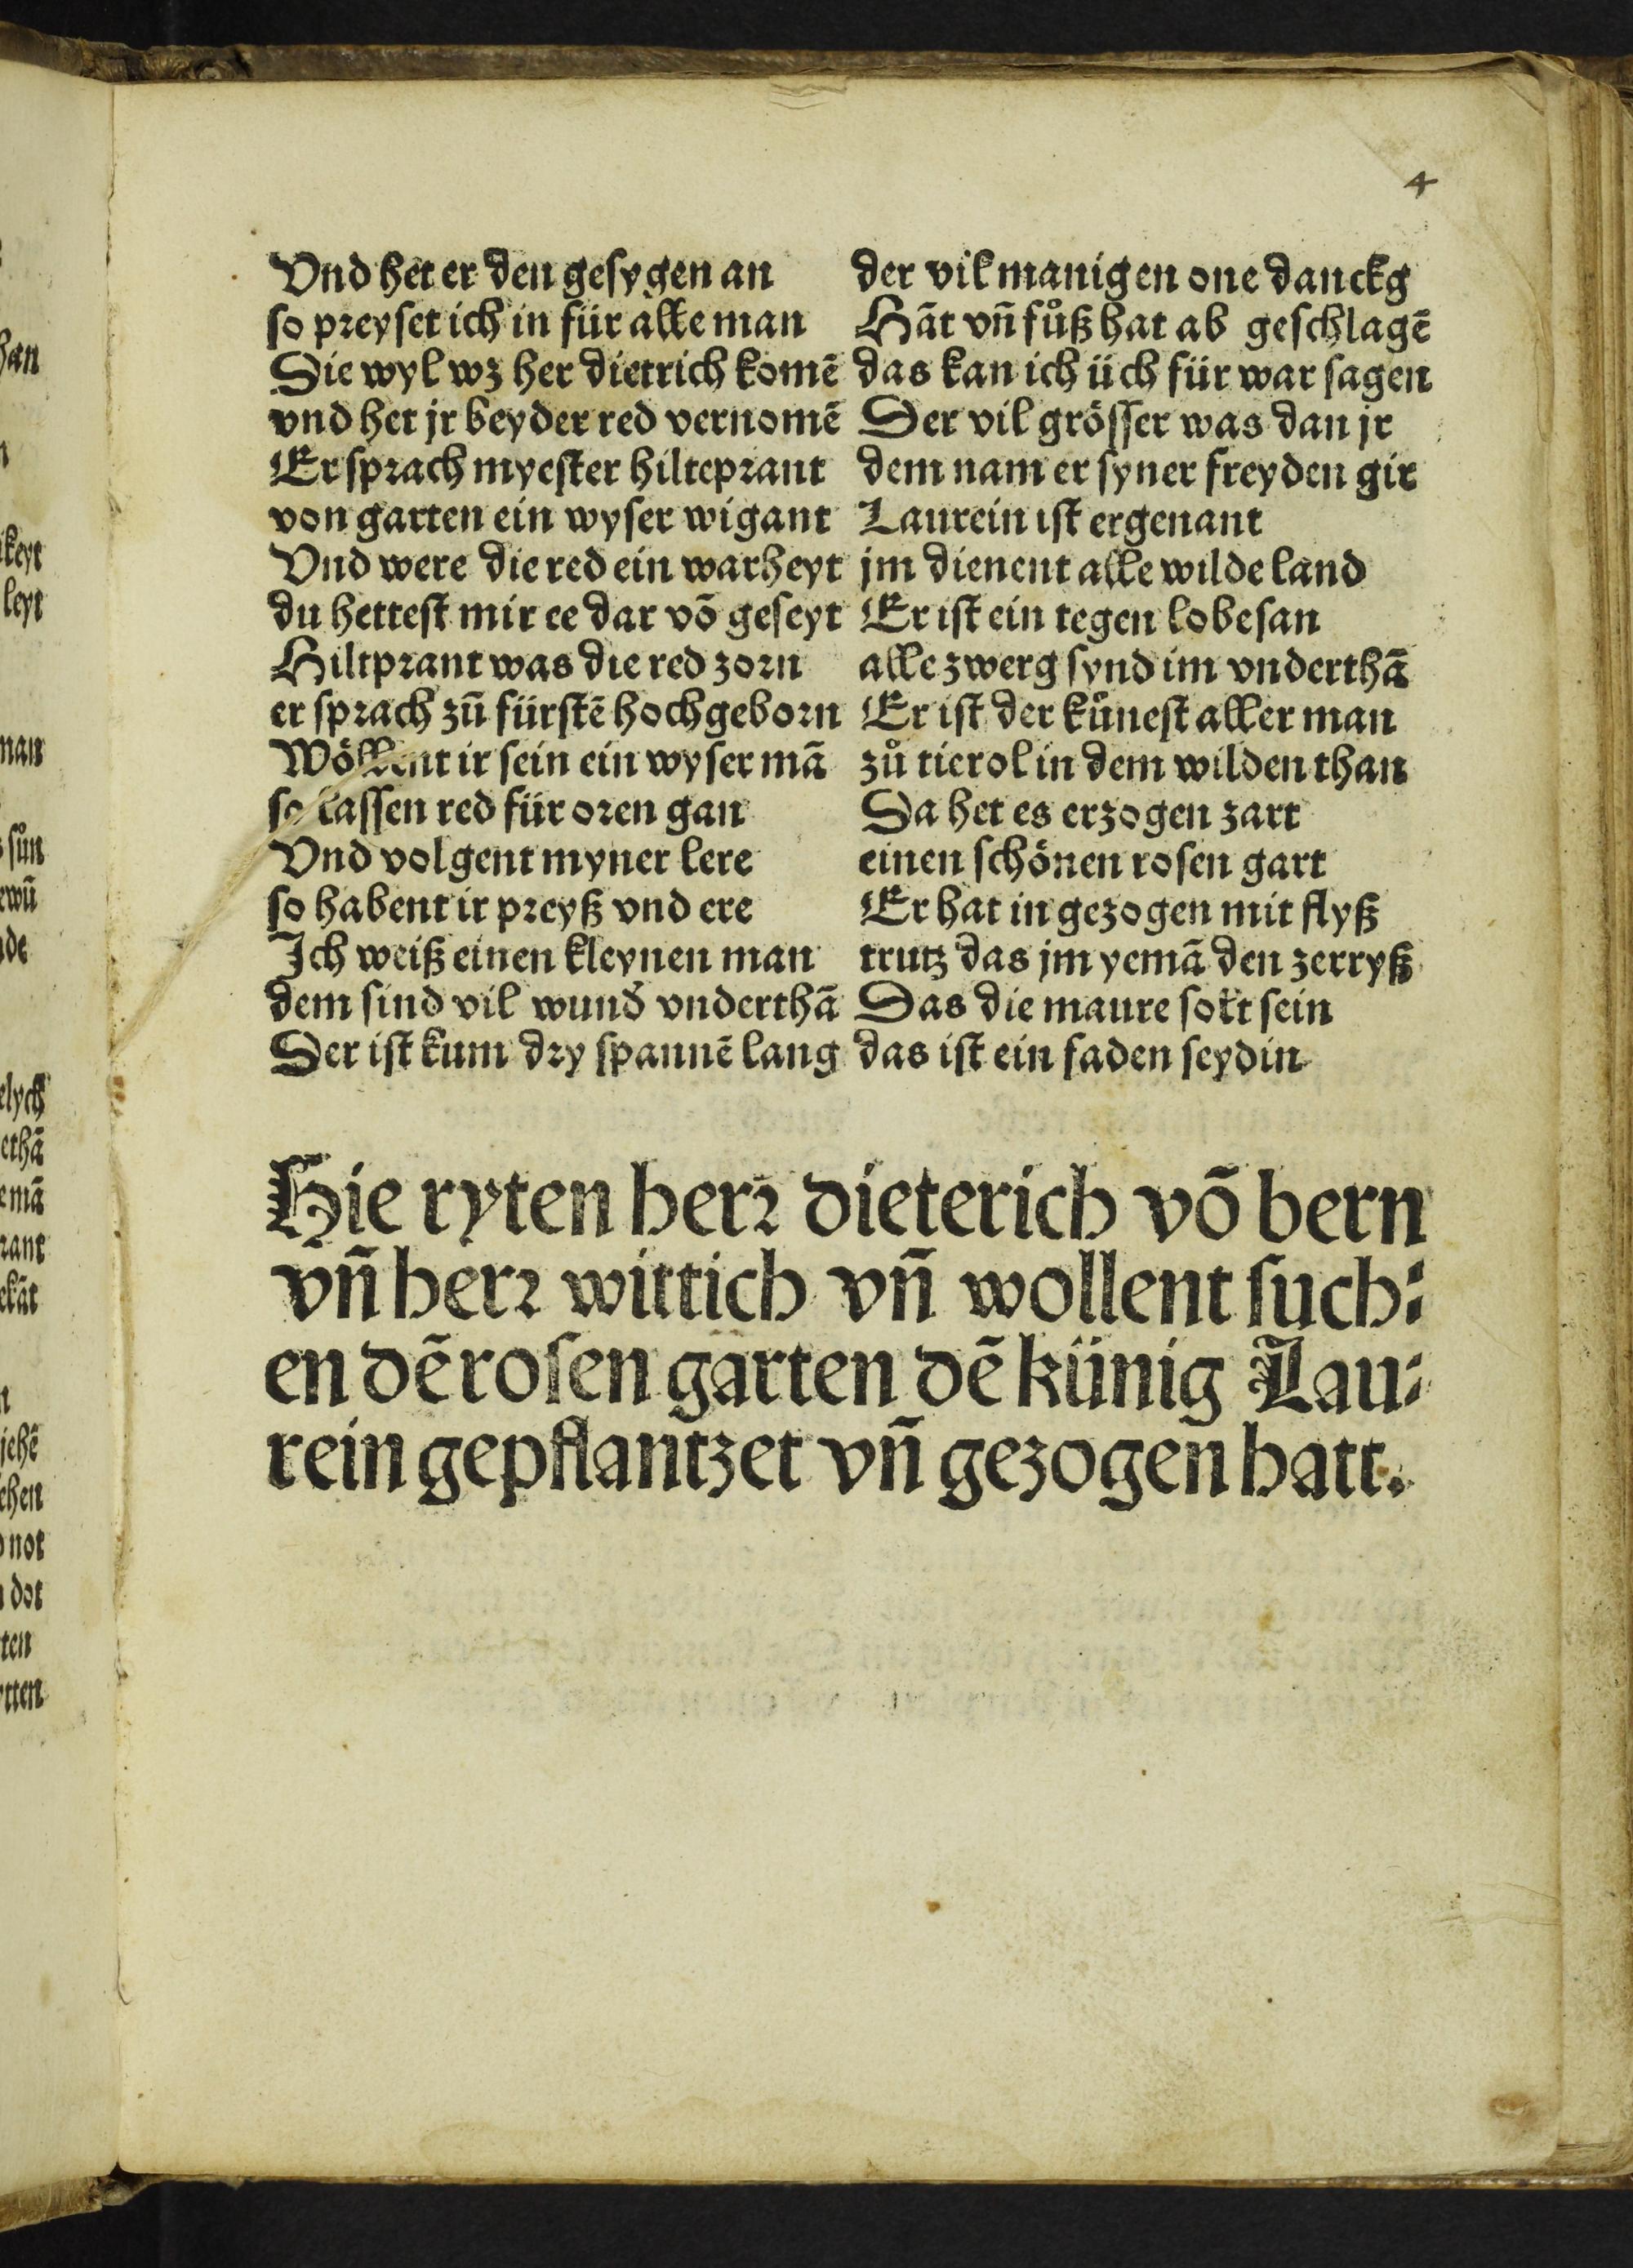 4
Vnd het er den gesygen an
so preyset ich in für alle man
Die wyl wz her dietrich komē
vnd het jr beyder red vernomē
Er sprach myester hilteprant
von garten ein wyser wigant
Vnd were die red ein warheyt
du hettest mir ee dar vō geseyt
Hiltprant was die red zorn
er sprach zū fürstē hochgeborn
Wöllent ir sein ein wyser mā
so lassen red für oren gan
Vnd volgent myner lere
so habent ir preyß vnd ere
Ich weiß einen kleynen man
dem sind vil wund' vnderthā
Der ist kum dry spannē lang
der vil manigen one danckg
Hāt vn̄ fůß hat ab geschlagē
das kan ich üch für war sagen
Der vil grösser was dan jr
dem nam er syner freyden gir
Laurein ist er genant
jm dienent alle wilde land
Er ist ein tegen lobesan
alle zwerg synd im vnderthā
Er ist der kůnest aller man
zů tierol in dem wilden than
Da het es erzogen zart
einen schönen rosen gart
Er hat in gezogen mit flyß
trutz das jm yemā den zerryß
Das die maure solt sein
das ist ein faden seydin
Hie ryten herr dieterich vō bern
vn̄ herr wittich vn̄ wollent such⸗
en dē rosen garten dē künig Lau⸗
rein gepflantzet vn̄ gezogen hatt.